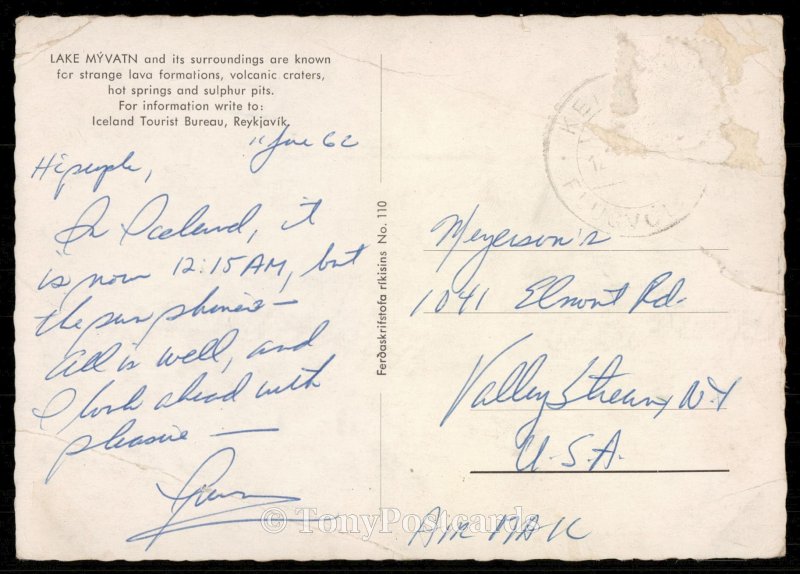 LAKE MÝVATN and its surroundings are known
for strange lava formations, volcanic craters,
hot springs and sulphur pits.
For information write to:
Iceland Tourist Bureau, Reykjavík.
11 June 62
Hi people,
In Iceland, it
is now 12:15 AM, but
the sun shines —
All is well, and
I look ahead with
pleasure —
Ferðaskrifstofa ríkisins No. 110
Meyerson's
1041 Elmont Rd.
Valley Stream, N.Y
U.S.A.
AIR MAIL
© TonyPostcards